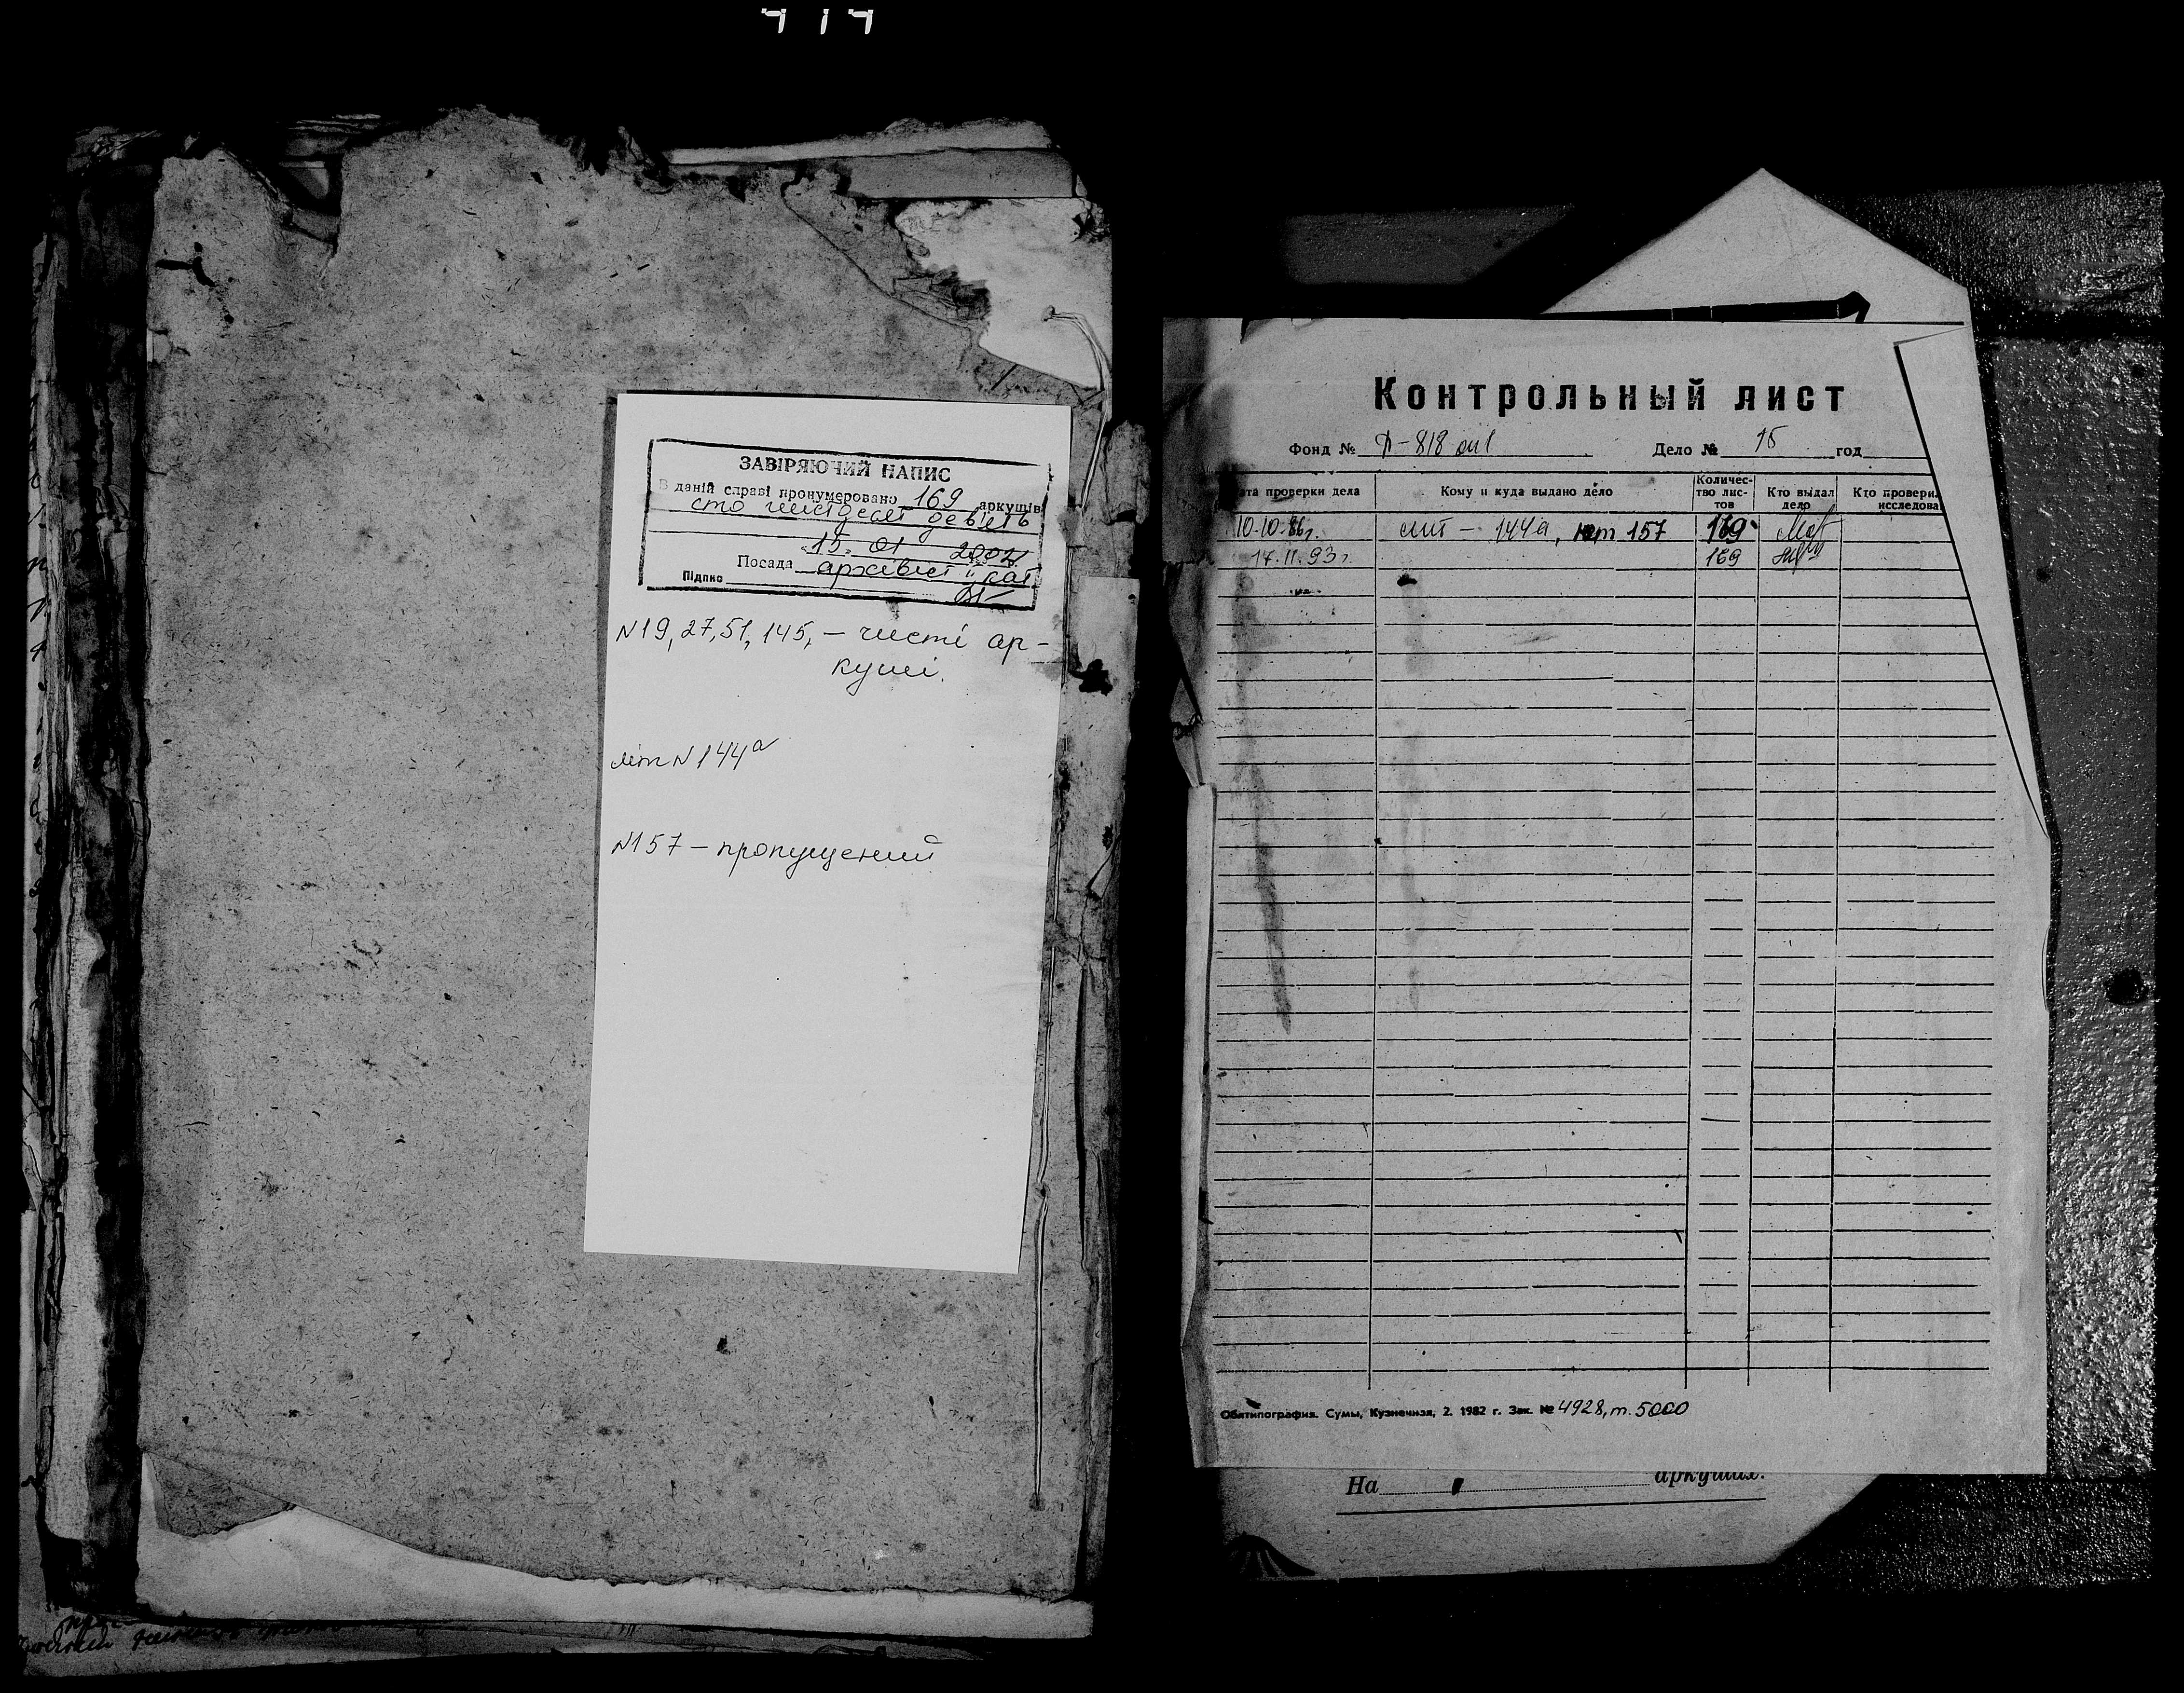 ЗАВІРЯЮЧИЙ НАПИС
В даній справі пронумеровано 169 аркушів
сто шістдесят девять
15. 01 2002
Посада архівіст II кат
Підпис
N19, 27, 51, 145, – чисті ар-
куші.
літ N144а
N157 – пропущений
Контрольный лист
Фонд № Ф-818 оп1 Дело № 15 год
ата проверки дела Кому и куда выдано дело Количес-тво лис-тов Кто выдал дело Кто провери исследова
10-10-86г. лит – 144а, нет 157 169
17.11.93г. 169
Облтипография. Сумы, Кузнечная, 2. 1982 г. Зак. № 4928, т. 5000
На аркушах.